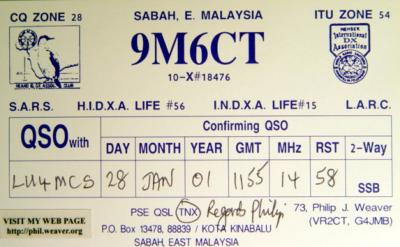 CQ ZONE 28 SABAH, E. MALAYSIA ITU ZONE 54
9M6CT
10-X#18476
Member International DX Association
HEARD IS. DX ASSOC. CLUB
S.A.R.S. H.I.D.X.A. LIFE #56 I.N.D.X.A. LIFE#15 L.A.R.C.
QSO with
Confirming QSO
DAY MONTH YEAR GMT MHz RST 2-Way
LU4MCS 28 JAN 01 1155 14 58 SSB
VISIT MY WEB PAGE
http://phil.weaver.org
PSE QSL TNX Regards Philip 73, Philip J. Weaver
P.O. Box 13478, 88839 / KOTA KINABALU (VR2CT, G4JMB)
SABAH, EAST MALAYSIA